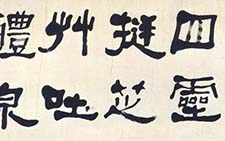 四靈
挺芝
艸吐
醴泉